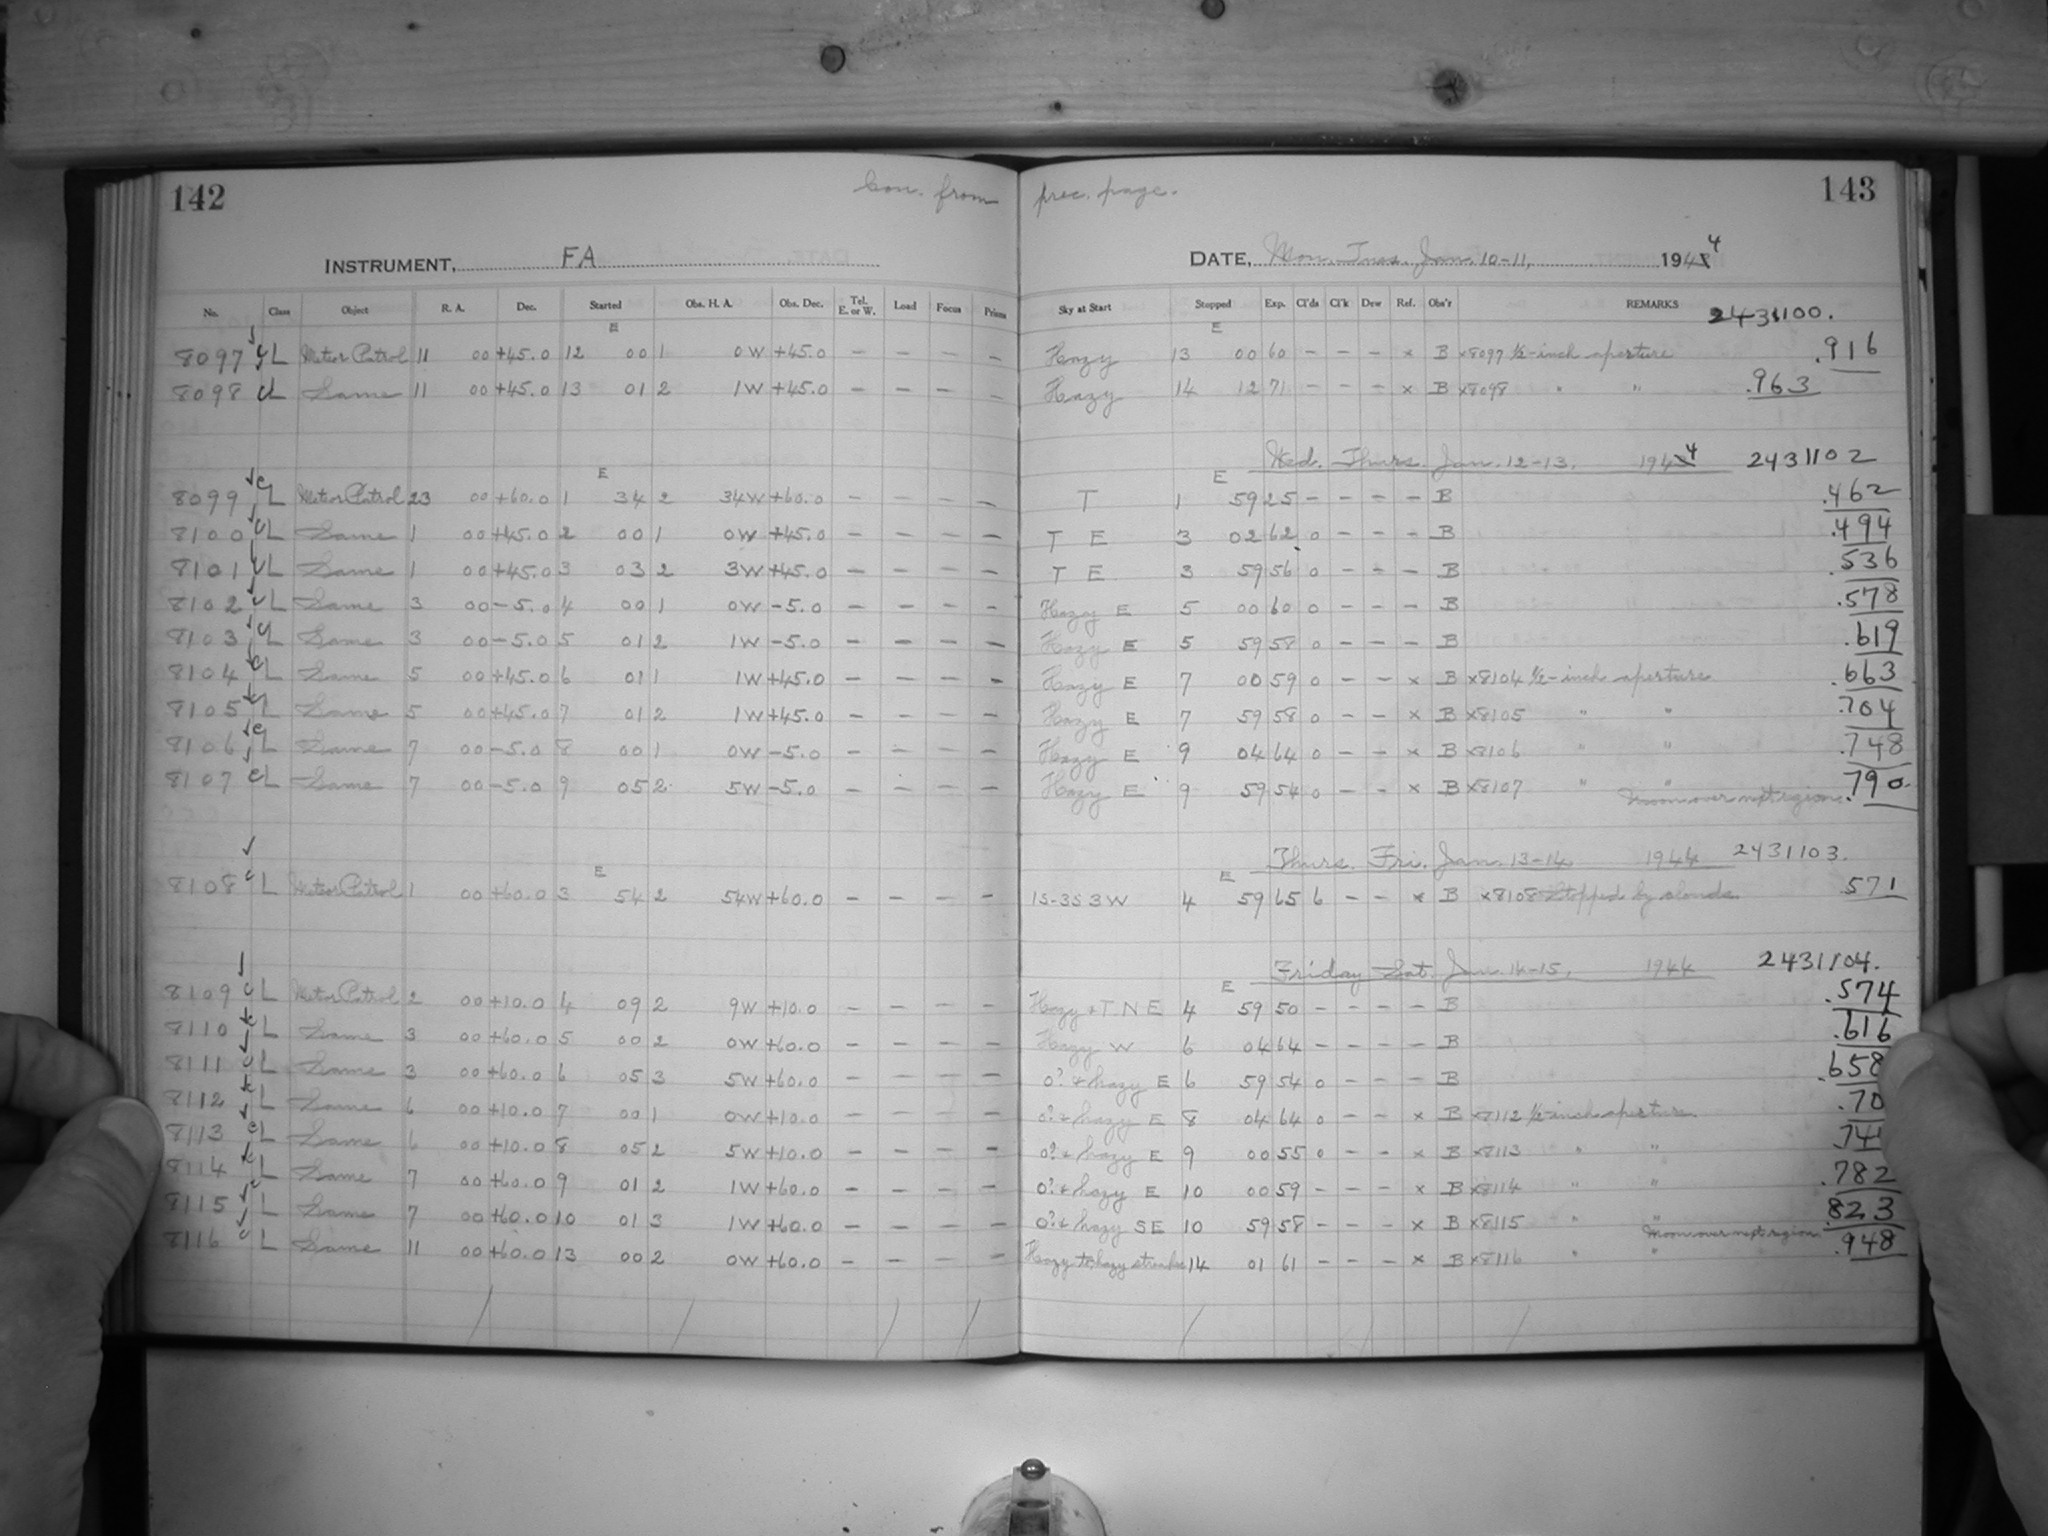 142 Con. from prec. page. 143
INSTRUMENT, FA DATE, Mon. Tues. Jan. 10-11, 1944
No. Class Object R. A. Dec. Started Obs. H. A. Obs. Dec. Tel. E. or W. Load Focus Prisms Sky at Start Stopped Exp. Cl'ds Cl'k Dew Ref. Obs'r REMARKS 2431100.
E E
8097 CL Meteor Patrol 11 00 +45.0 12 00 1 0W +45.0 – – – – Hazy 13 00 60 – – – x B x8097 ½-inch aperture .916
8098 CL Same 11 00 +45.0 13 01 2 1W +45.0 – – – – Hazy 14 12 71 – – – x B x8098 " " .963
Wed. Thurs. Jan. 12-13, 1944 2431102
E E
8099 CL Meteor Patrol 23 00 +60.0 1 34 2 34W +60.0 – – – – T 1 59 25 – – – – B .462
8100 CL Same 1 00 +45.0 2 00 1 0W +45.0 – – – – T E 3 02 62 0 – – – B .494
8101 CL Same 1 00 +45.0 3 03 2 3W +45.0 – – – – T E 3 59 56 0 – – – B .536
8102 CL Same 3 00 -5.0 4 00 1 0W -5.0 – – – – Hazy E 5 00 60 0 – – – B .578
8103 CL Same 3 00 -5.0 5 01 2 1W -5.0 – – – – Hazy E 5 59 58 0 – – – B .619
8104 CL Same 5 00 +45.0 6 01 1 1W +45.0 – – – – Hazy E 7 00 59 0 – – x B x8104 ½-inch aperture .663
8105 CL Same 5 00 +45.0 7 01 2 1W +45.0 – – – – Hazy E 7 59 58 0 – – x B x8105 " " .704
8106 CL Same 7 00 -5.0 8 00 1 0W -5.0 – – – – Hazy E 9 04 64 0 – – x B x8106 " " .748
8107 CL Same 7 00 -5.0 9 05 2 5W -5.0 – – – – Hazy E 9 59 54 0 – – x B x8107 " " .790
Moon over next region.
Thurs. Fri. Jan. 13-14, 1944 2431103.
E E
8108 CL Meteor Patrol 1 00 +60.0 3 54 2 54W +60.0 – – – – 1S-3S3W 4 59 65 6 – – x B x8108 Stopped by clouds .571
Friday Sat. Jan. 14-15, 1944 2431104.
E
8109 CL Meteor Patrol 2 00 +10.0 4 09 2 9W +10.0 – – – – Hazy & T N E 4 59 50 – – – – B .574
8110 CL Same 3 00 +60.0 5 00 2 0W +60.0 – – – – Hazy W 6 04 64 – – – – B .616
8111 CL Same 3 00 +60.0 6 05 3 5W +60.0 – – – – 0? & hazy E 6 59 54 0 – – – B .658
8112 CL Same 6 00 +10.0 7 00 1 0W +10.0 – – – – 0? & hazy E 8 04 64 0 – – x B x8112 ½-inch aperture .70
8113 CL Same 6 00 +10.0 8 05 2 5W +10.0 – – – – 0? & hazy E 9 00 55 0 – – x B x8113 " " .74
8114 CL Same 7 00 +60.0 9 01 2 1W +60.0 – – – – 0? & hazy E 10 00 59 – – – x B x8114 " " .782
8115 CL Same 7 00 +60.0 10 01 3 1W +60.0 – – – – 0? & hazy SE 10 59 58 – – – x B x8115 " " .823
Moon over next region.
8116 CL Same 11 00 +60.0 13 00 2 0W +60.0 – – – – Hazy to hazy streaks 14 01 61 – – – x B x8116 " " .948